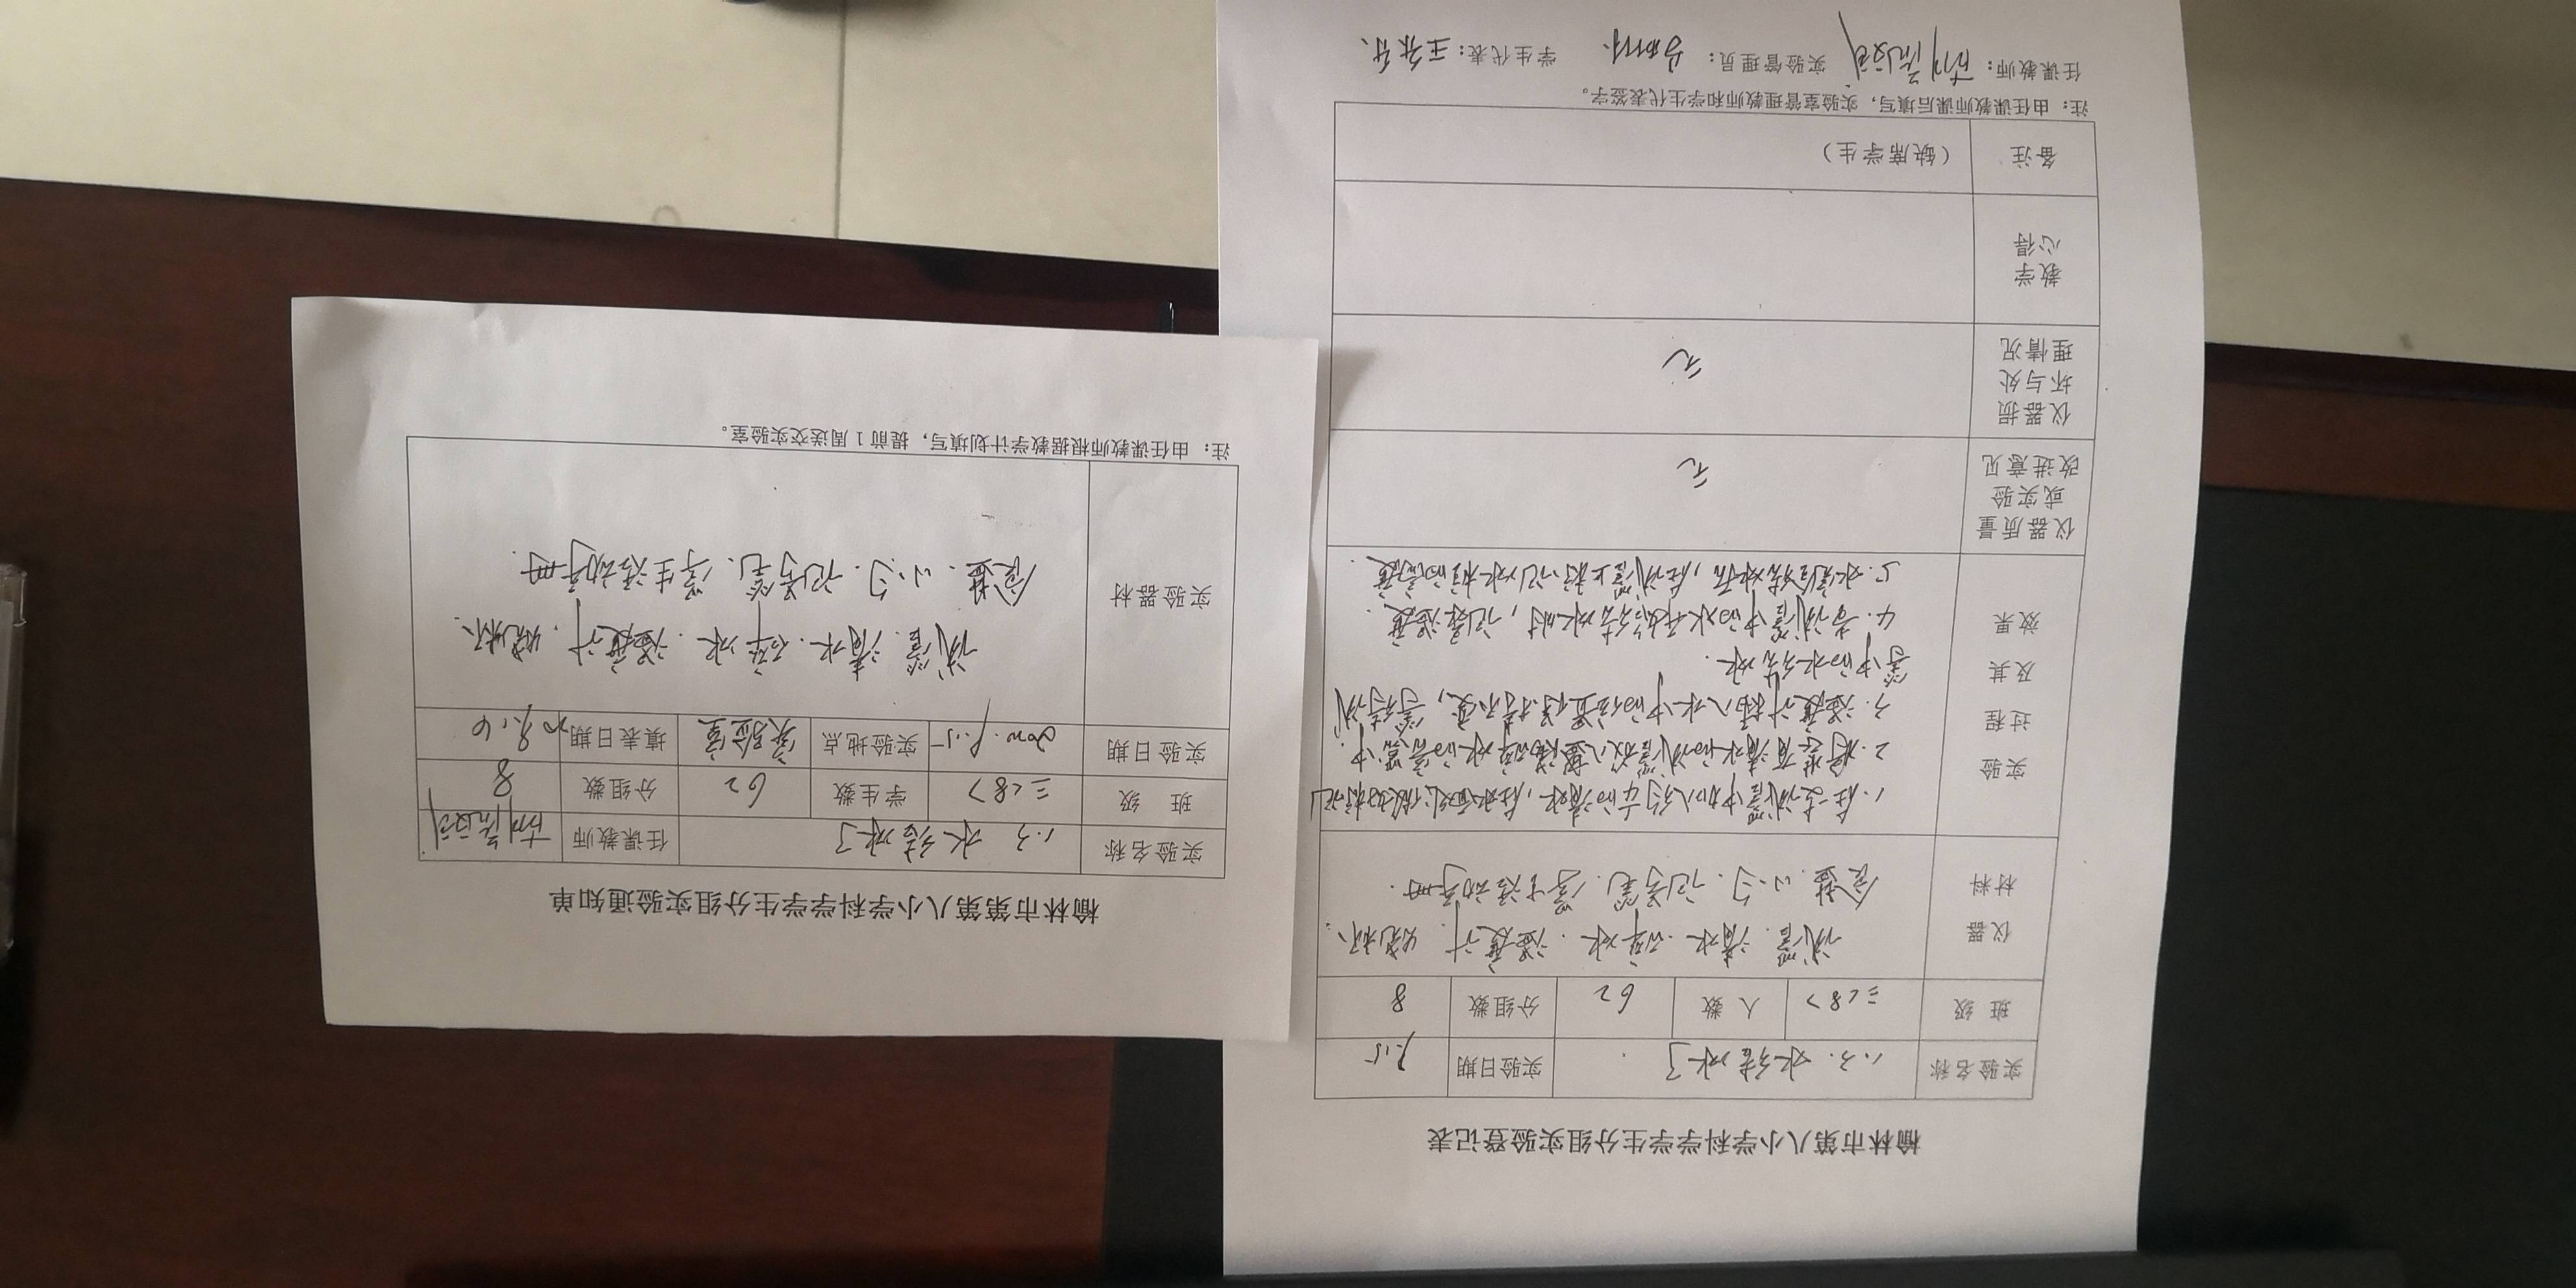 榆林市第八小学科学学生分组实验登记表
实验名称 1.3. 水结冰了 实验日期
班 级 三<8> 人 数 62 分组数 8
仪器
材料
试管. 清水. 碎冰. 温度计. 烧杯.
食盐. 小勺. 记号笔.
实验
过程
及其
效果
2. 将装有清水的试管放入盛满碎冰的容器中.
3. 温度计插入水中的位置保持不变, 等待试
管中的水结冰.
4. 当试管中的水开始结冰时, 记录温度.
5. 水完全结冰后, 在试管上标记冰柱的高度.
仪器质量
或实验
改进意见
无
仪器损
坏与处
理情况
无
教学
心得
备注 (缺席学生)
注: 由任课教师课后填写, 实验室管理教师和学生代表签字。
任课教师: 实验管理员: 学生代表: 王
榆林市第八小学科学学生分组实验通知单
实验名称 1.3 水结冰了 任课教师
班 级 三<8> 学生数 62 分组数 8
实验日期 实验地点 实验室 填表日期
实验器材
试管. 清水. 碎冰. 温度计. 烧杯.
食盐. 小勺. 记号笔. 学生活动手册.
注: 由任课教师根据教学计划填写, 提前1周送交实验室。